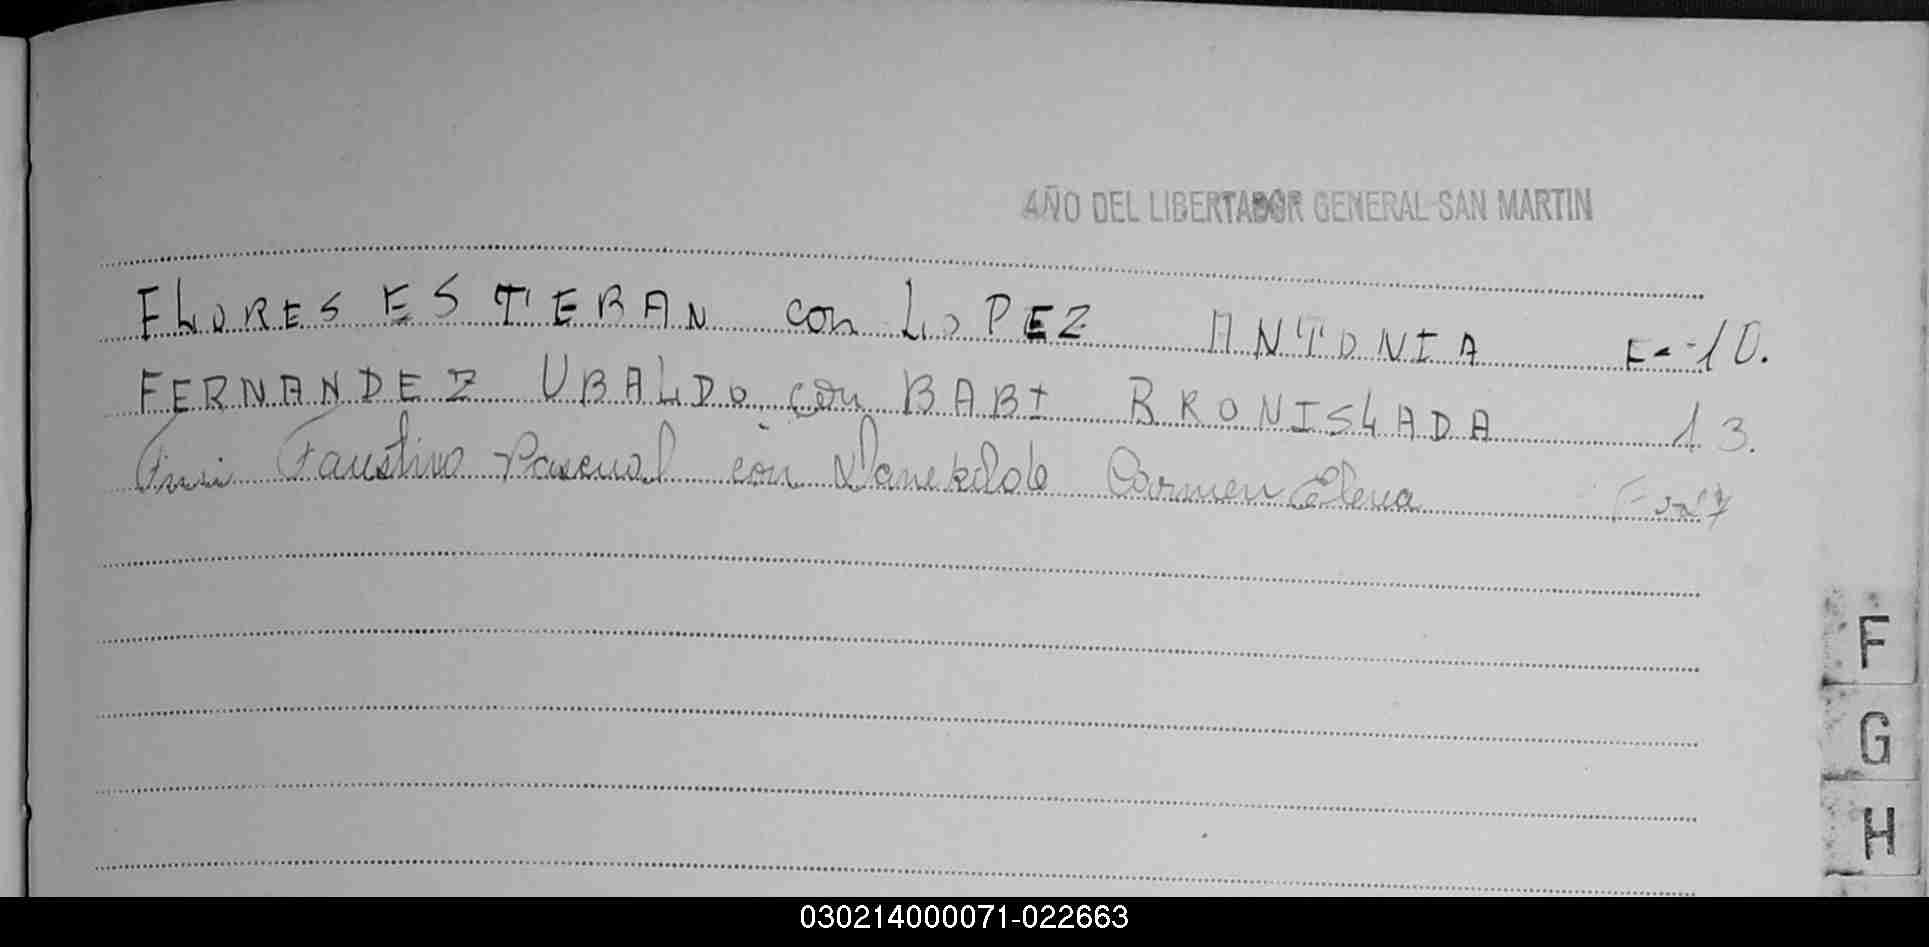 AÑO DEL LIBERTADOR GENERAL SAN MARTIN
FLORES ESTEBAN con LOPEZ ANTONIA F- 10.
FERNANDEZ UBALDO con BABI BRONISLADA 13.
Faustino Pascual con Carmen Elena F
F
G
H
030214000071-022663